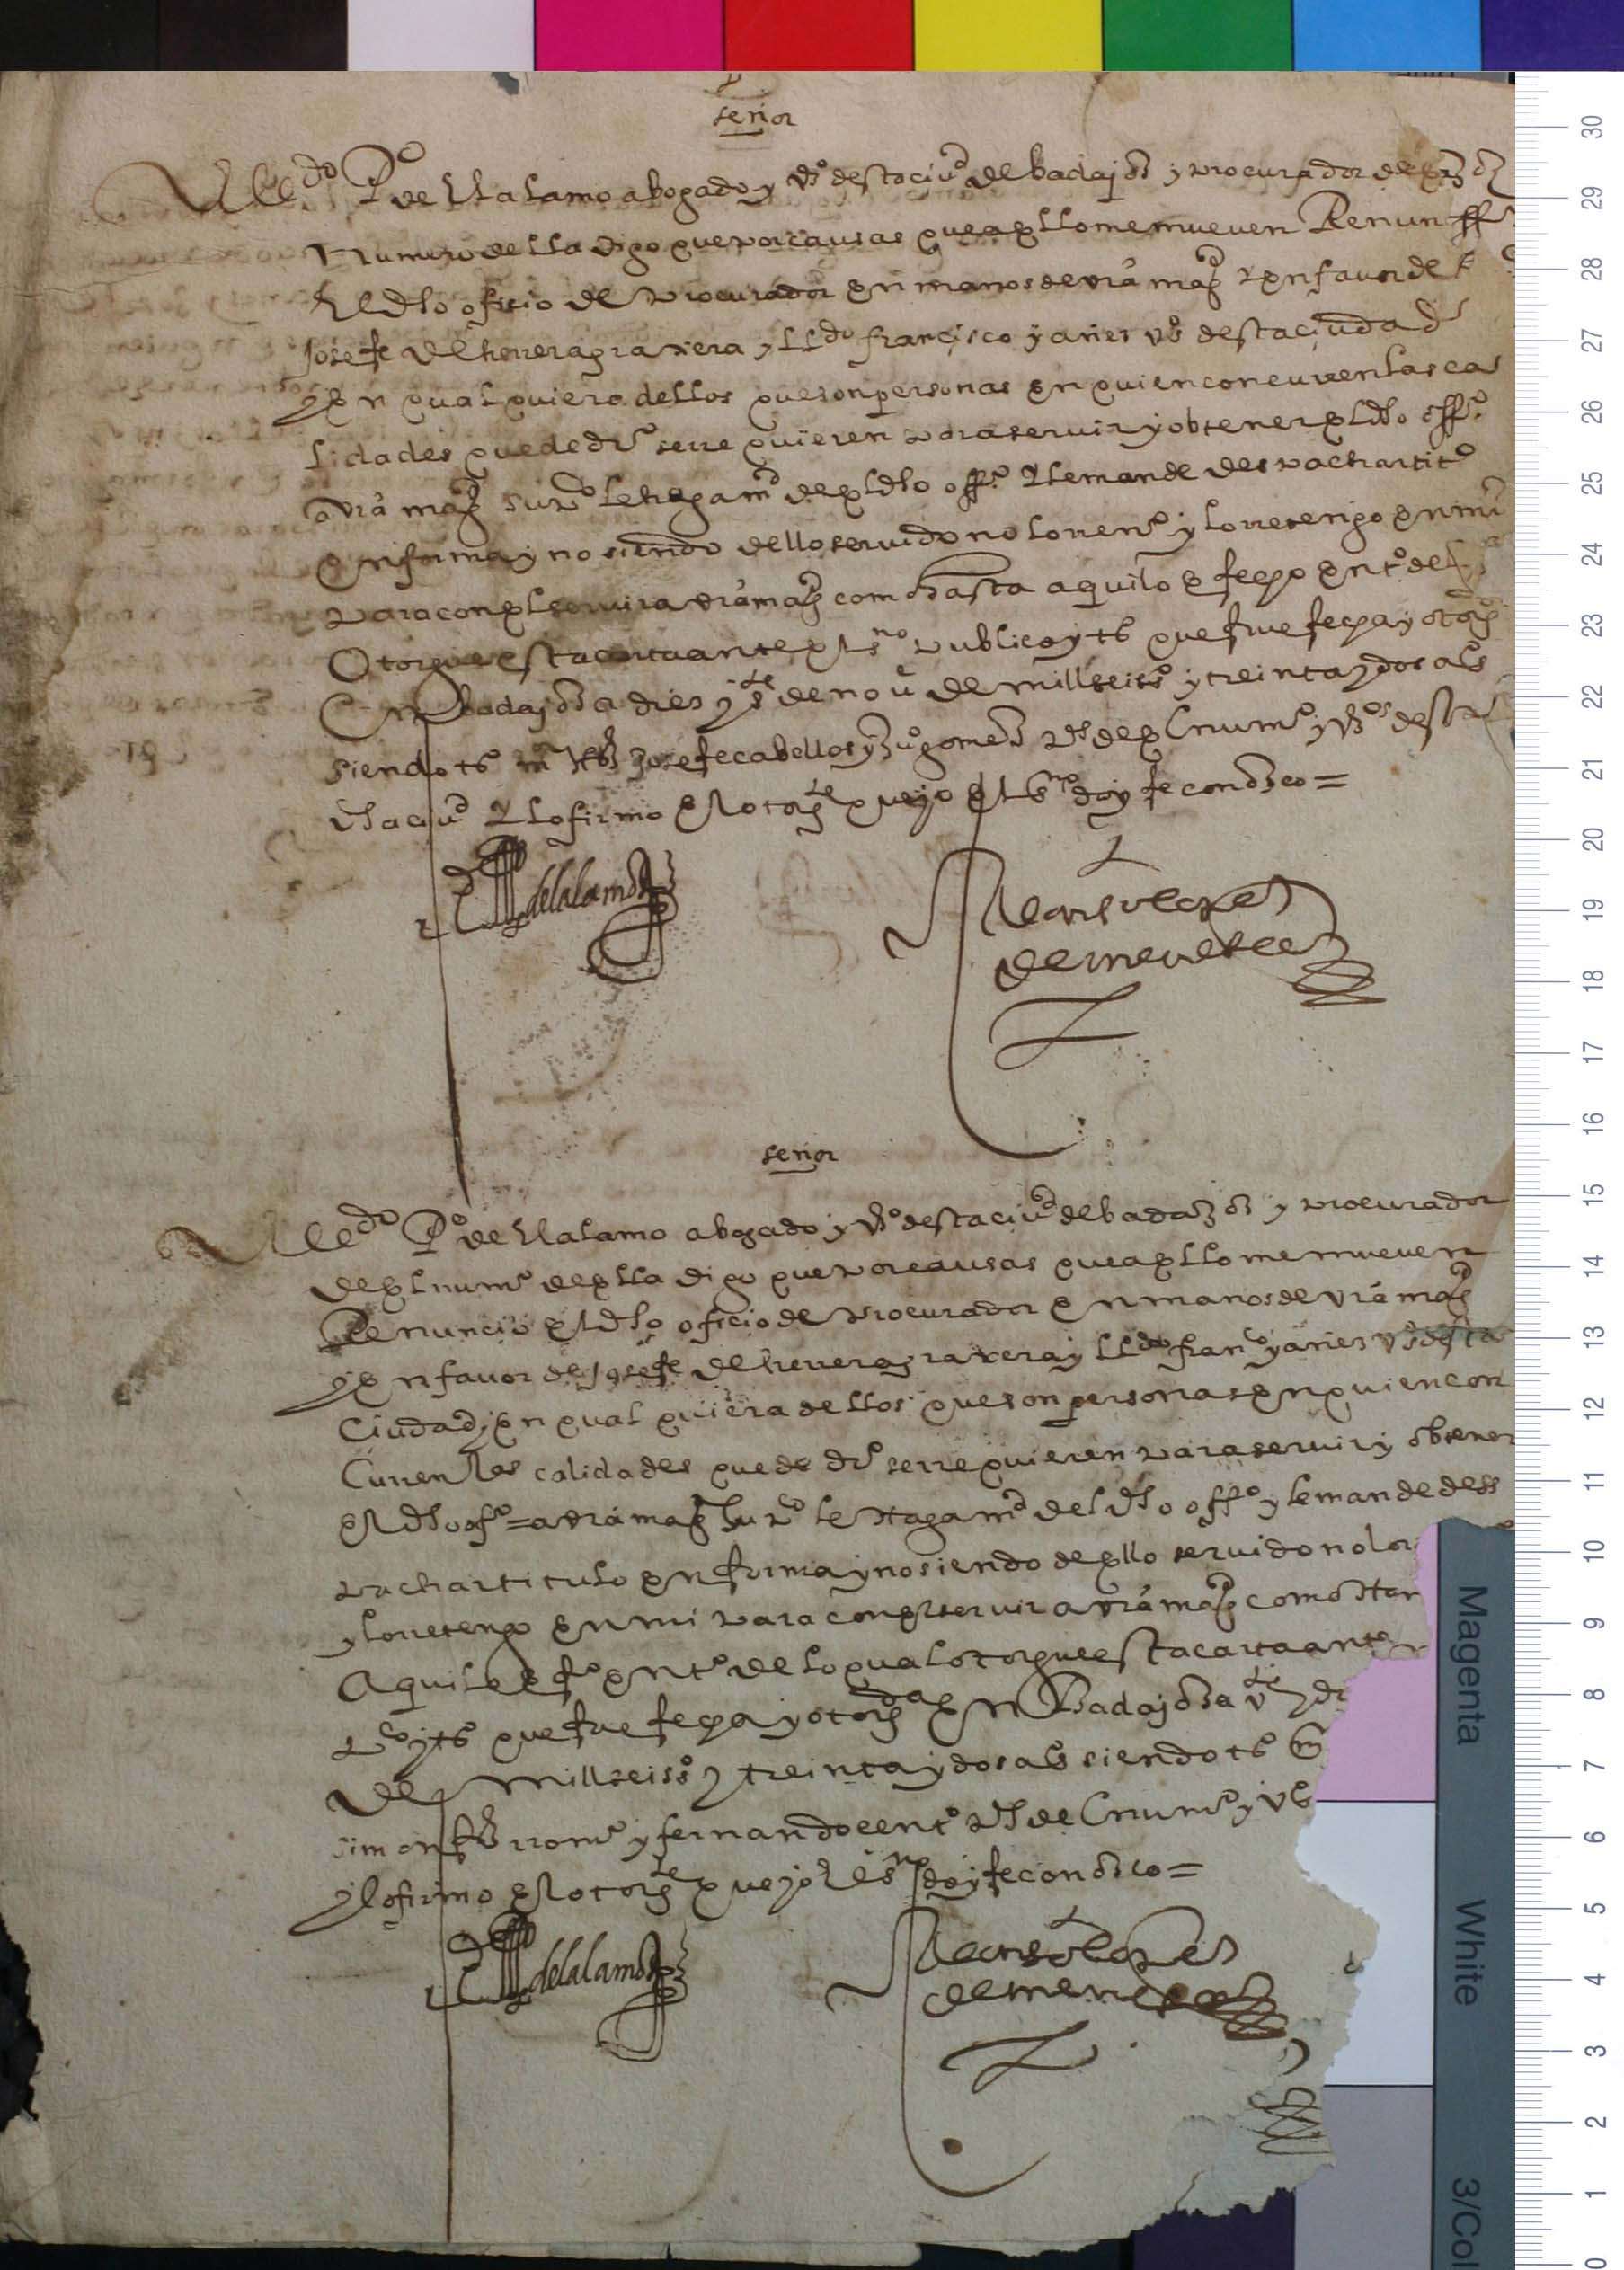 señor
El lldo Po de el alamo abogado y vo desta ciud de badajoz y procurador del
numero della digo que por causas que a ello me mueven Renun
El dho oficio de procurador en manos de vra magd y en favor de
Josefe de herrera graxera y lldo francisco yañes vs desta ciudad
y en qualquiera dellos que son personas en quien concurren las ca
lidades que de dro se rrequieren para servir y obtener el dho offo
a vra magd supco le haga md de el dho offo y le mande despachar tito
en forma y no siendo dello servido no lo rreno y lo rretengo en mi
para con el servir a vra magd como hasta aqui lo e fecho en to de lo
Otorgue esta carta ante el sno publico y to que fue fecha y otorg
En badajoz a dies y te de nove de mill seiso y treinta y dos as
siendo to Josefe cabellos y gomez ps de el numo y vos desta
dha ciud y lo firmo el otorgte que yo el sno doy fe conozco =
P delalamo
Alonso lopez
de meneses
señor
El lldo Po de el alamo abogado y vo desta ciud de badaxoz y procurador
de el numo de ella digo que por causas que a ello me mueven
Renuncio el dho oficio de procurador en manos de vra magd
y en favor de josefe de herrera graxera y lldo franco yañes vs desta
Ciudad y en qualquiera dellos que son personas en quien con
Curren las calidades que de dro se rrequieren para servir y obtener
el dho ofo = a vra magd supco le haga md del dho offo y le mande dess
pachar titulo en forma y no siendo de ello servido no lo
y lo rretengo en mi para con el servir a vra magd como
Aqui lo e fo en to de lo qual otorgue esta carta ante
po y to que fue fecha y otorgda en Badajoz a vte y
de mill seiso y treinta y dos as siendo to
simon rromo y fernando cento ps de el numo y vo
y lo firmo el otorgte que yo el esno doy fe conozco =
P delalamo
Alonso lopez
de meneses